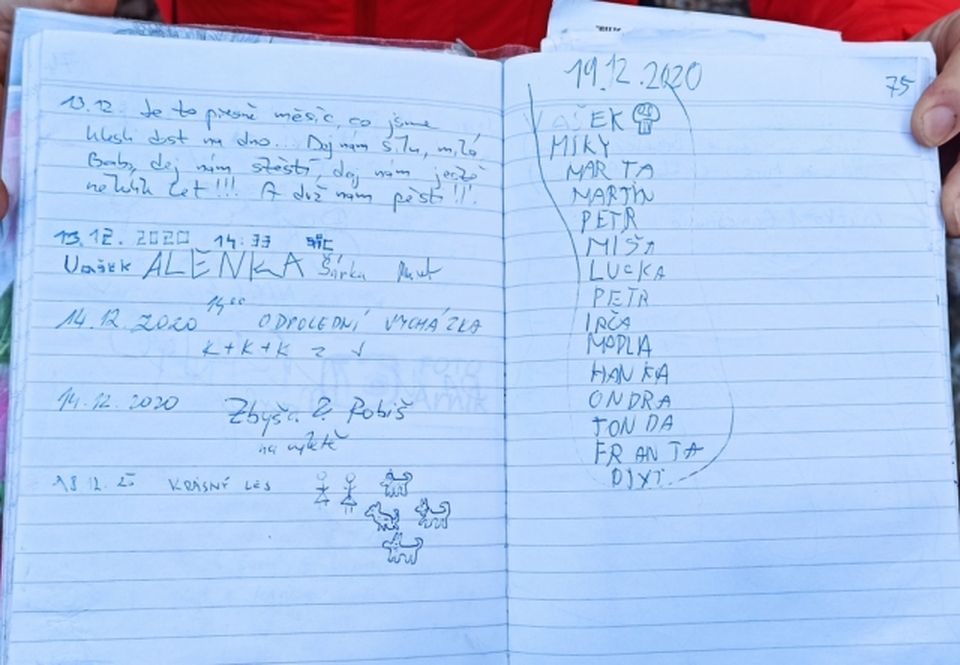 13.12. Je to přesně měsíc, co jsme
klesli dost na dno... Dej nám sílu, milá
dej nám štěstí, dej nám ještě
několik let!!! A drž nám pěsti!!!
13.12.2020 14:33
Vašek ALENKA Šárka
14.12.2020 14⁰⁰ ODPOLEDNÍ VYCHÁZKA
K+K+K
14.12.2020 Zbyša & Robiš
na výletě
18.12. KRÁSNÝ LES
19.12.2020
75
VAŠEK
MIKY
MARTA
MARTIN
PETR
MIŠA
LUCKA
PETR
IRČA
MADLA
HANKA
ONDRA
TONDA
FRANTA
DIXI